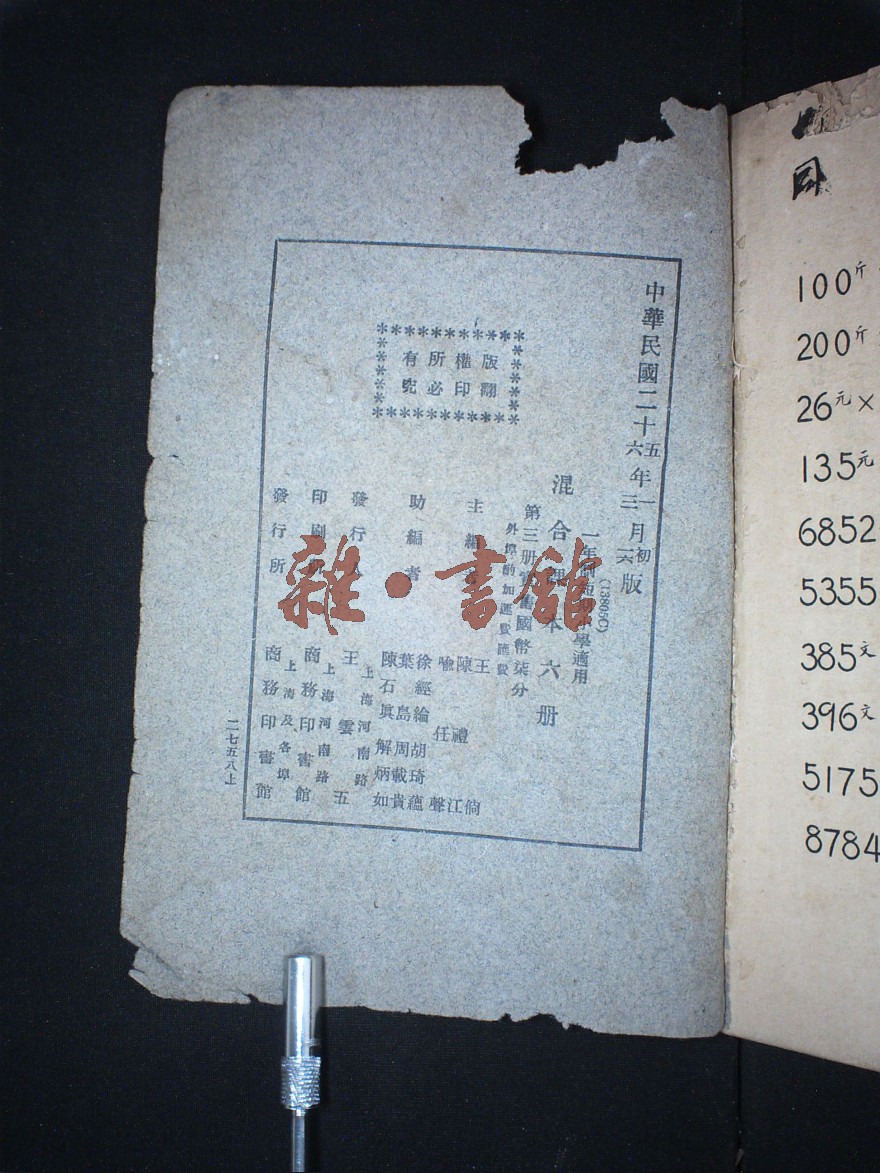 中華民國二十五年一月初版
六 三 六
一年制短期小學適用
(13805C)
混合課本六册
第三册實價國幣柒分
外埠酌加運費匯費
主編者
王
禮
陳
江
喻
任
聲
助編者
徐經綸
胡琦
蘊
葉島
周載
貴
陳石眞
解炳如
發行人
上海河南路
王雲五
印刷所
上海河南路
商務印書館
發行所
上海及各埠
商務印書館
版權所有
翻印必究
二七五八上
雜·書館
司
100斤
200斤
26元×
135元
6852
5355
385文
396文
5175
8784